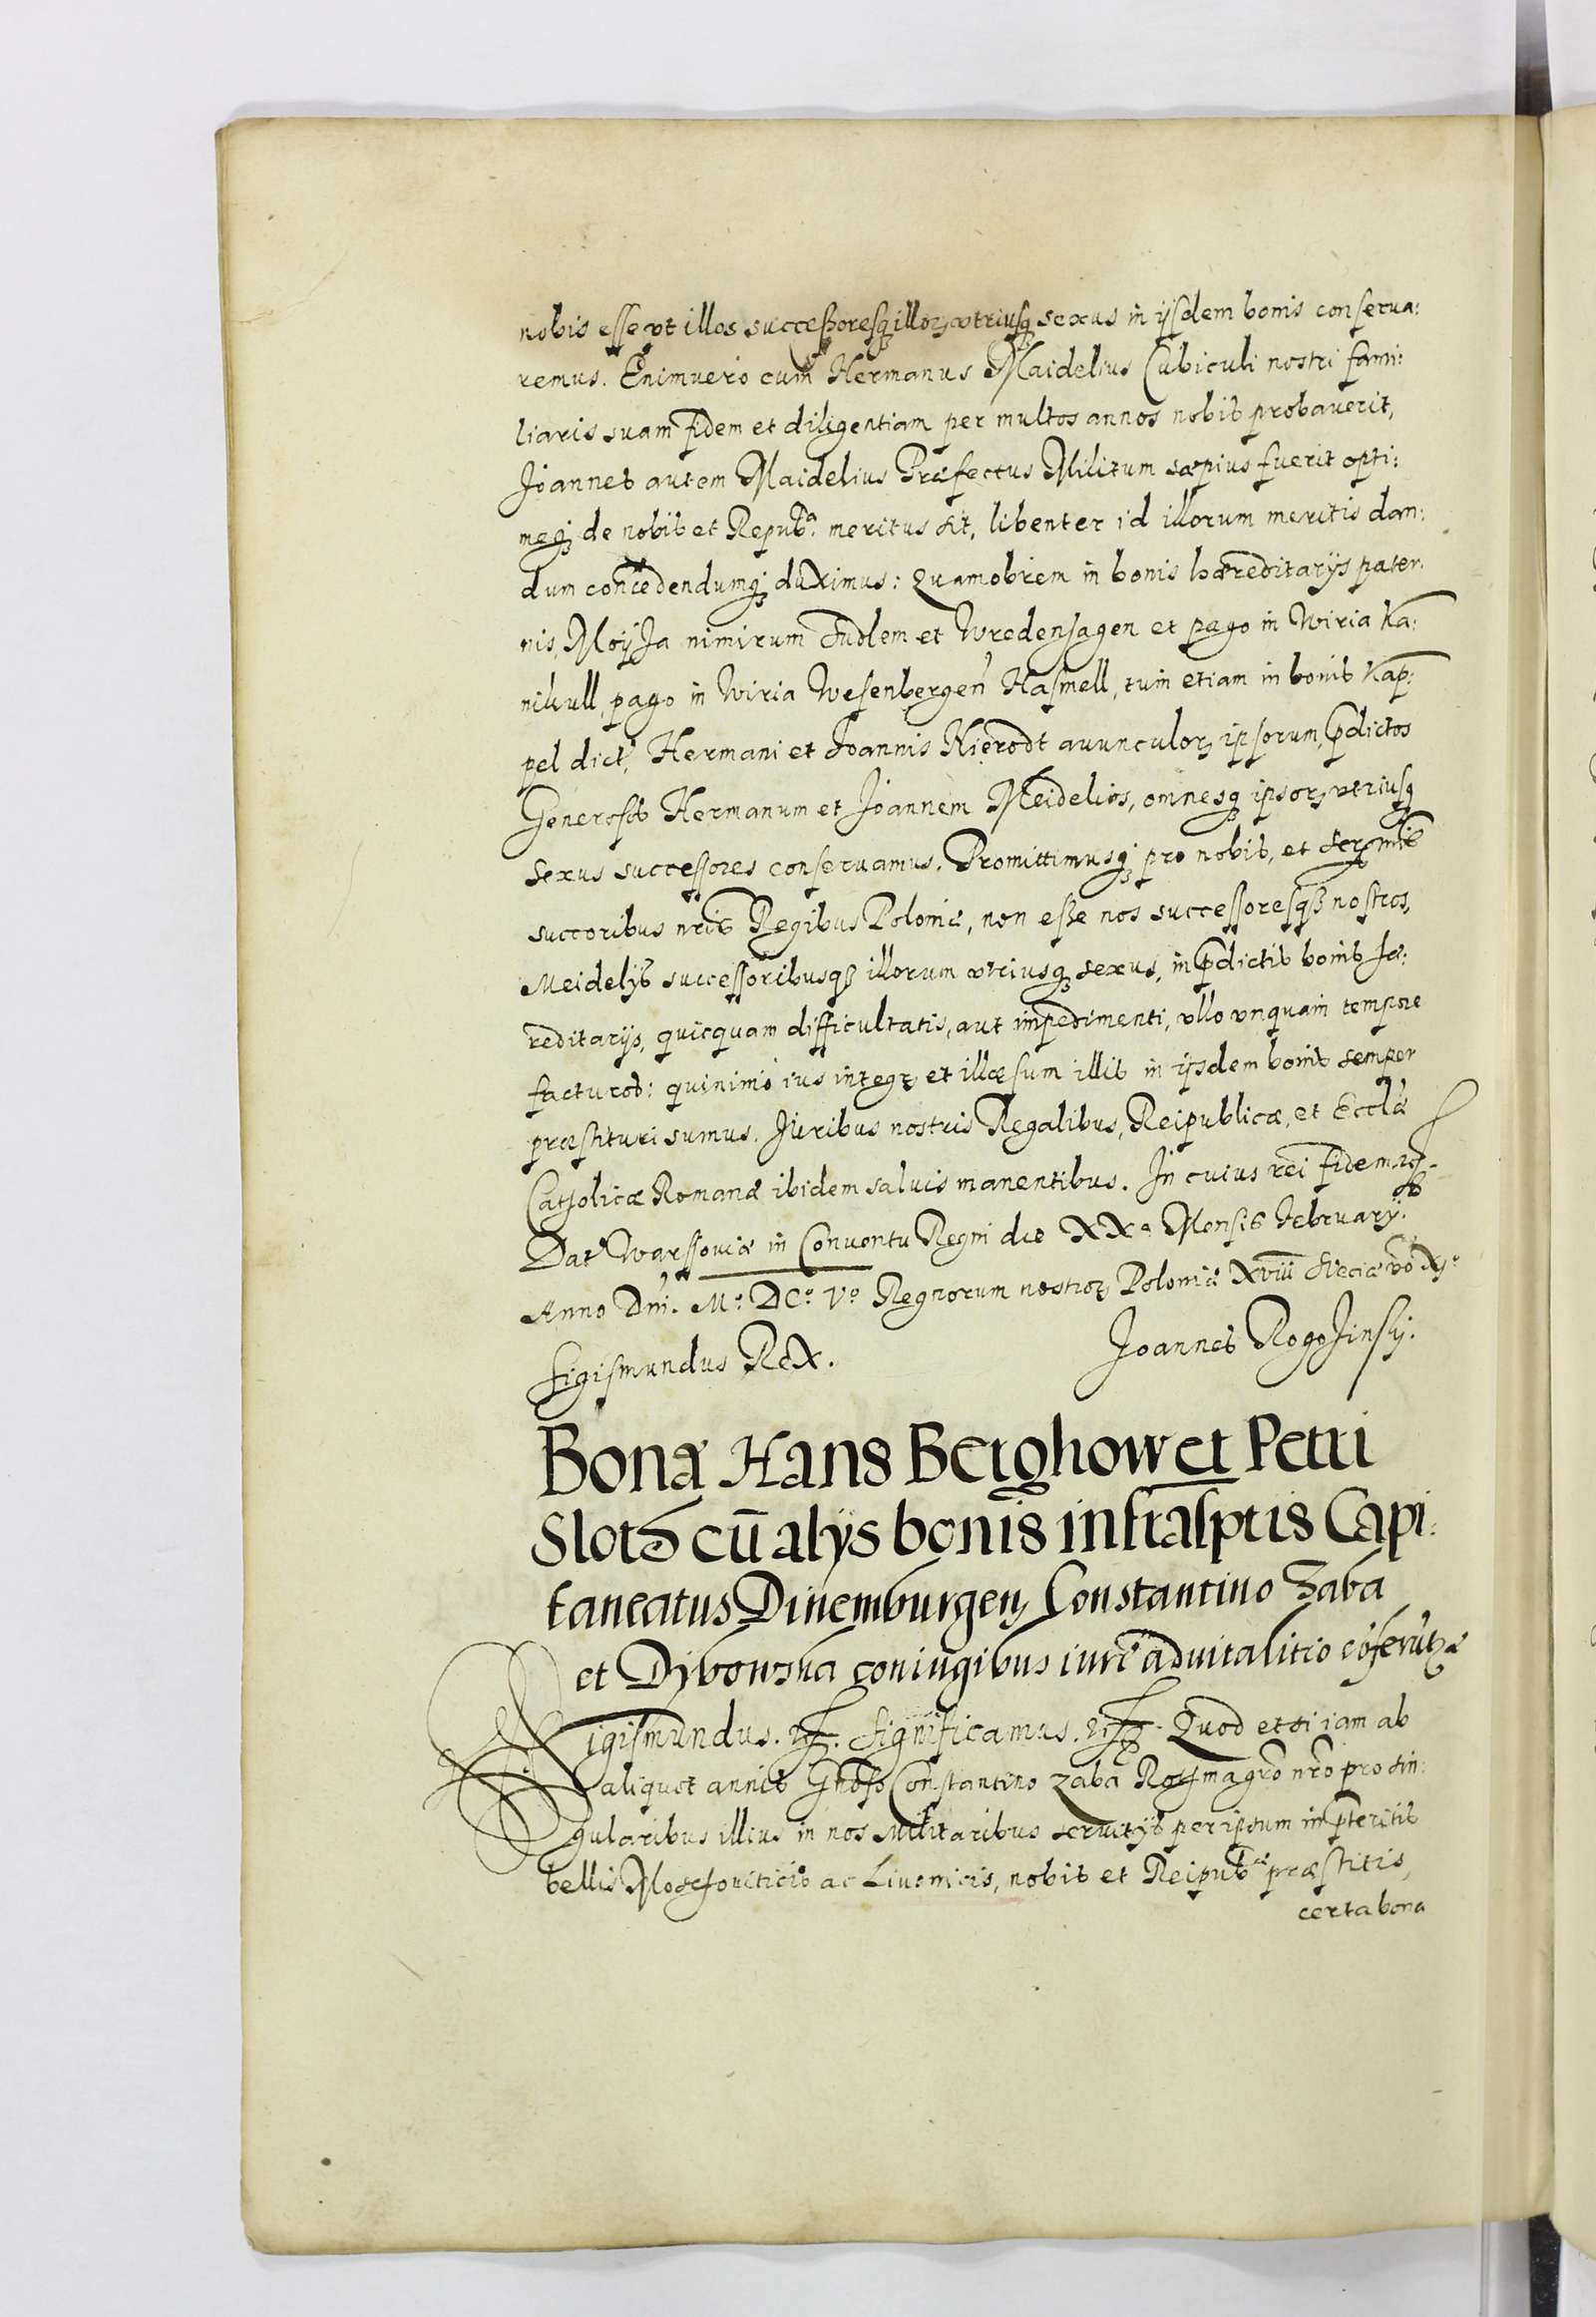 nobis esse vt illos successoresq; illorꝫ vtriusq; sexus in ijsdem bonis conserua:
remus. Enimuero cum Hermanus Maidelius Cubiculi nostri fami:
liaris suam fidem et diligentiam per multos annos nobis probauerit,
Joannes autem Maidelius Præfectus Militum sæpius fuerit opti:
meq; de nobis et Repubᵃ. meritus sit, libenter id illorum meritis dan:
dum concedendumq; duximus: Quamobrem in bonis hæreditarijs pater:
nis, Moyha nimirum et Wredenhagen et pago in Wiria Ka:
nikull, pago in Wiria Wesenbergen Hasmell, tum etiam in bonis Kap:
pel dict. Hermani et Joannis Nierodt auunculorꝫ ipsorum, p̄dictos
Generosos Hermanum et Joannem Meidelios, omnesq; ipsorꝫ vtriusq;
sexus successores conseruamus. Promittimusq; pro nobis, et Serꝫmis
succoribus nris Regibus Poloniæ, non esse nos successoresqꝫ nostros,
Meidelijs successoribusqꝫ illorum vtriusq; sexus, in p̄dictis bonis hæ:
reditarijs, quicquam difficultatis, aut impedimenti, vllo vnquam tempore
facturos: quinimo ius integꝝ et illæsum illis in ijsdem bonis semper
præstituri sumus. Juribus nostris Regalibus, Reipublicæ, et Ecclæ
Catholicæ Romanæ ibidem saluis manentibus. In cuius rei fidem ꝛc.
Dat Warssouiæ in Conuentu Regni die XXᵃ Mensis February.
Anno Dni. Mº. DCº. Vº Regnorum nostrorꝫ Poloniæ XVIII Sueciæ vō XIº
Sigismundus Rex. Joannes Rogohinsky.
Bona Hans Berghow et Petri
Sloto cū alijs bonis infrasptis Capi:
taneatus Dinemburgenꝫ Constantino Zaba
et Dybowska coniugibus iure aduitalitio cōferūtꝫ
Sigismundus. ꝛc. Significamus. ꝛc. Quod etsi iam ab
aliquot annis Gnoso Constantino Zaba Rothmagro nro pro sin:
gularibus illius in nos Militaribus seruitijs per ipsum in p̄teritis
bellis Moschouiticis ac Liuonicis, nobis et Reipubᶜᵃᵉ præstitis,
certa bona